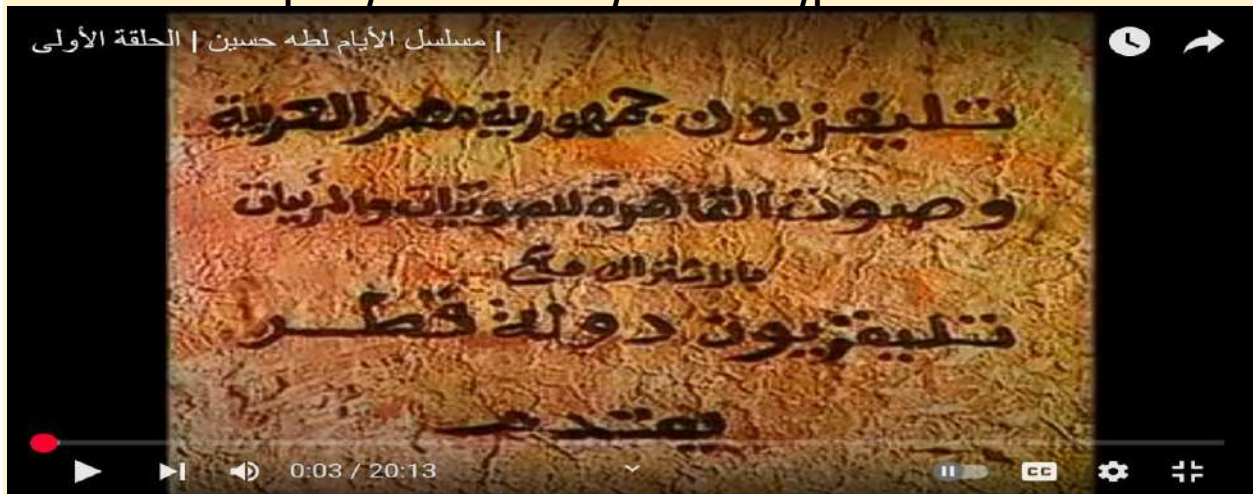 | مسلسل الأيام لطه حسين | الحلقة الأولى
تليفزيون جمهورية مصر العربية
وصوت القاهرة للصوتيات والمرئيات
بالاشتراك مع
تليفزيون دولة قطر
يقدم
0:03 / 20:13
CC